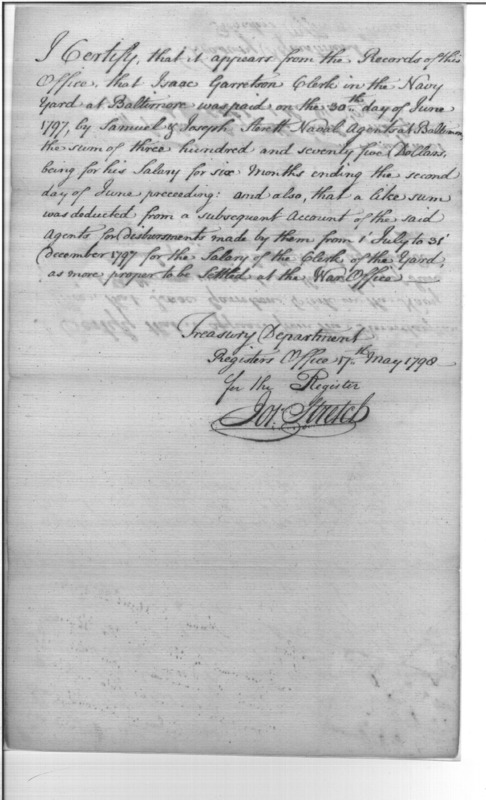 I Certify, that it appears from the Records of this
Office, that Isaac Garretson Clerk in the Navy
Yard at Baltimore was paid on the 30th day of June
1797, by Samuel & Joseph Sterett Naval Agents at Baltimore
the sum of three hundred and seventy five Dollars,
being for his Salary for six Months ending the second
day of June preceeding: and also, that a like sum
was deducted from a subsequent Account of the said
Agents for disbursments made by them from 1t July to 31t
December 1797 for the Salary of the Clerk of the Yard,
as more proper to be settled at the War Office
Treasury Department
Registers Office 17th May 1798
for the Register
Jos. Stretch